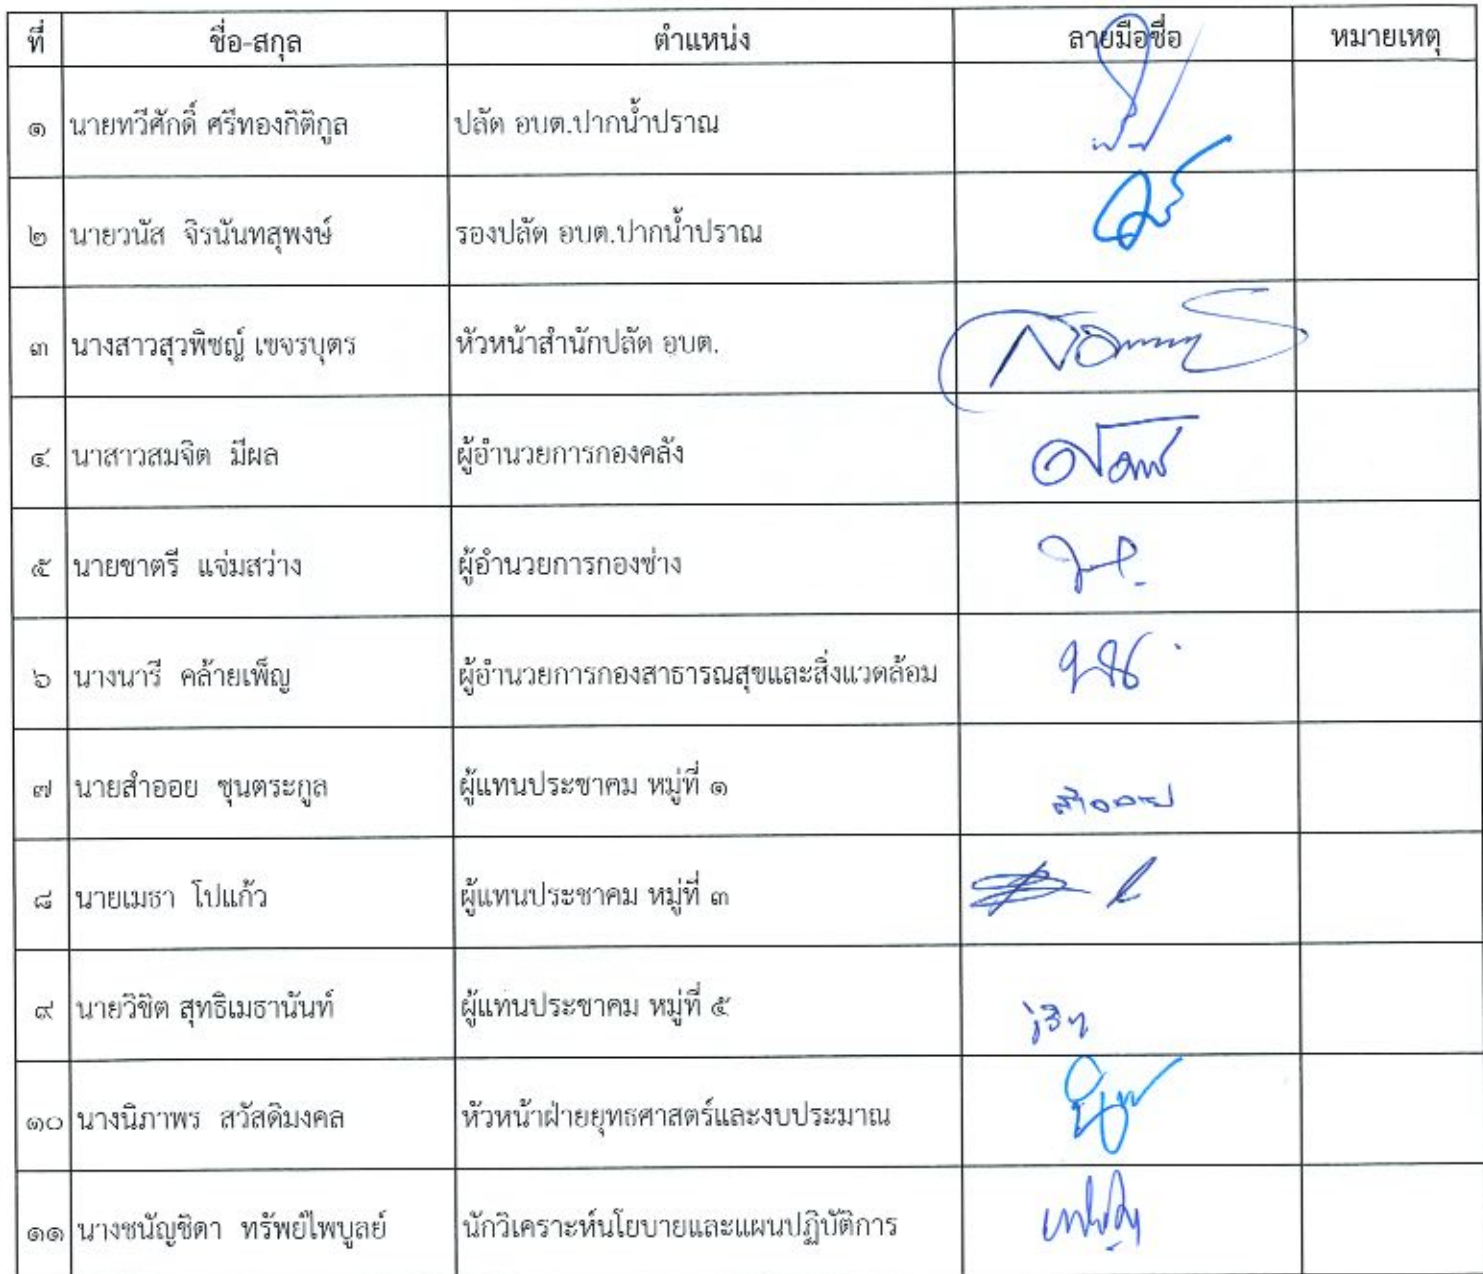 ที่ ชื่อ-สกุล ตำแหน่ง ลายมือชื่อ หมายเหตุ
๑ นายทวีศักดิ์ ศรีทองกิติกูล ปลัด อบต.ปากน้ำปราณ
๒ นายวนัส จิรนันทสุพงษ์ รองปลัด อบต.ปากน้ำปราณ
๓ นางสาวสุวพิชญ์ เขจรบุตร หัวหน้าสำนักปลัด อบต.
๔ นาสาวสมจิต มีผล ผู้อำนวยการกองคลัง
๕ นายชาตรี แจ่มสว่าง ผู้อำนวยการกองช่าง
๖ นางนารี คล้ายเพ็ญ ผู้อำนวยการกองสาธารณสุขและสิ่งแวดล้อม
๗ นายสำออย ชุนตระกูล ผู้แทนประชาคม หมู่ที่ ๑ สำออย
๘ นายเมธา โปแก้ว ผู้แทนประชาคม หมู่ที่ ๓
๙ นายวิชิต สุทธิเมธานันท์ ผู้แทนประชาคม หมู่ที่ ๕
๑๐ นางนิภาพร สวัสดิมงคล หัวหน้าฝ่ายยุทธศาสตร์และงบประมาณ
๑๑ นางชนัญชิดา ทรัพย์ไพบูลย์ นักวิเคราะห์นโยบายและแผนปฏิบัติการ